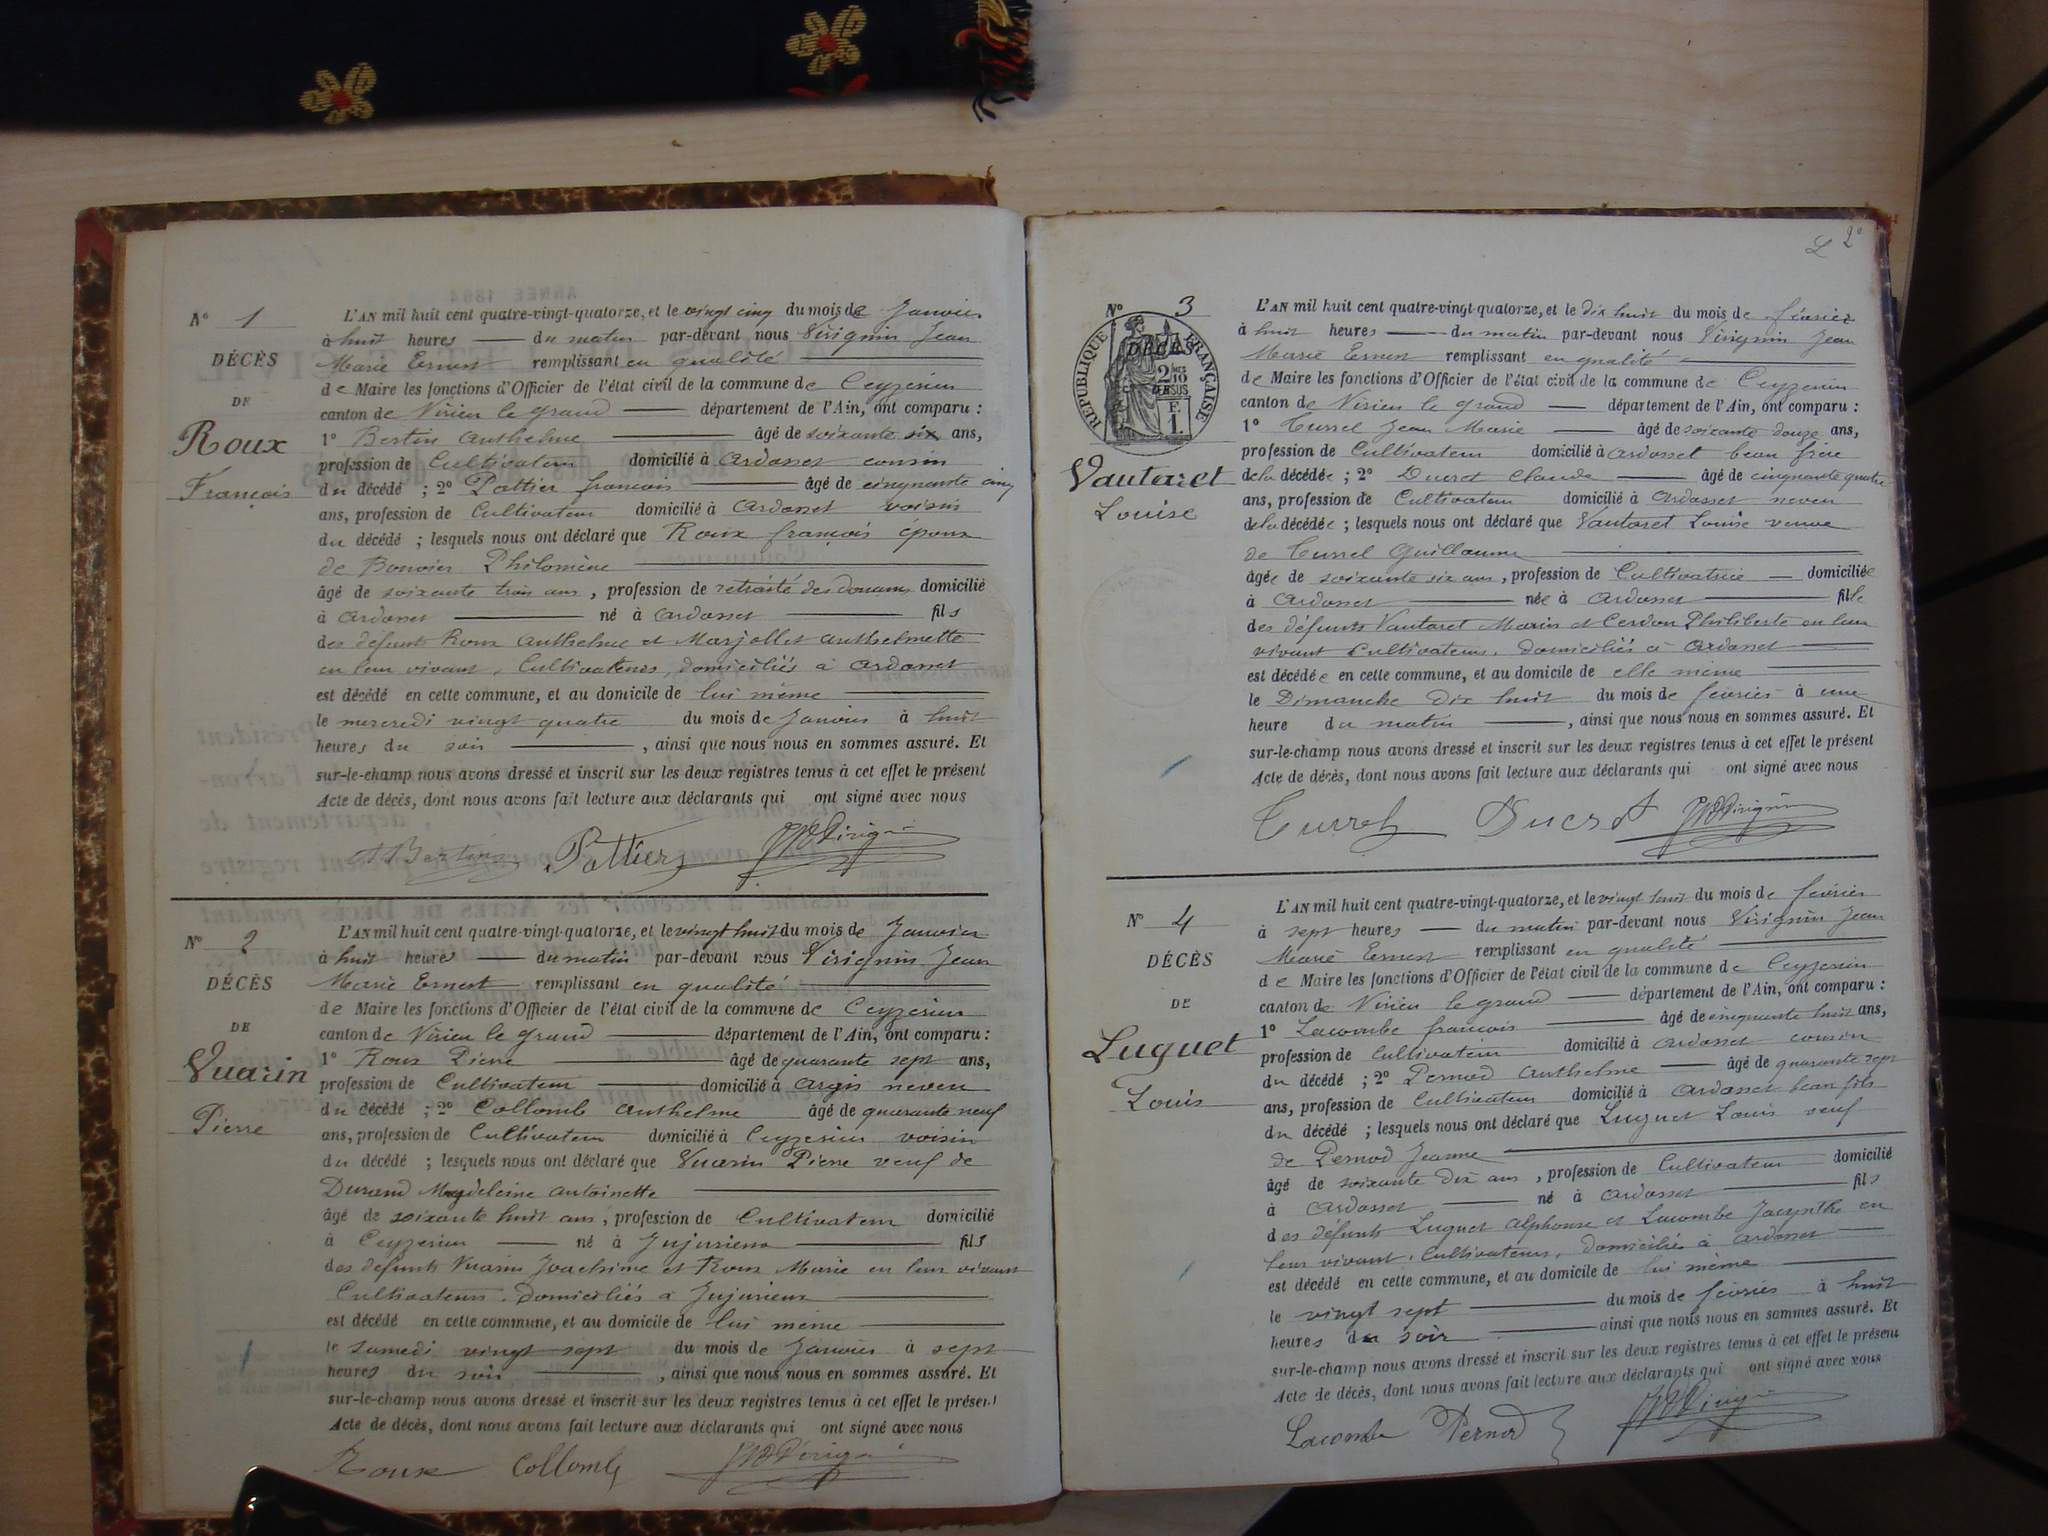 N° 1
DÉCÈS
DE
Roux
François
L'AN mil huit cent quatre-vingt-quatorze, et le vingt cinq du mois de Janvier
à huit heures du matin par-devant nous Virignin Jean
Marie Ernest remplissant en qualité
de Maire les fonctions d'Officier de l'état civil de la commune de Ceyzerieu
canton de Virieu le grand département de l'Ain, ont comparu :
1° Bertin Anthelme âgé de soixante six ans,
profession de Cultivateur domicilié à Ardosset cousin
du décédé ; 2° Pottier françois âgé de cinquante cinq
ans, profession de Cultivateur domicilié à Ardosset voisin
du décédé ; lesquels nous ont déclaré que Roux françois époux
de Bouvier Philomène
âgé de soixante trois ans, profession de retraité des douanes domicilié
à Ardosset né à Ardosset fils
des défunts Roux Anthelme et Marjollet Anthelmette
en leur vivant, Cultivateurs, domiciliés à Ardosset
est décédé en cette commune, et au domicile de lui même
le mercredi vingt quatre du mois de Janvier à huit
heures du soir , ainsi que nous nous en sommes assuré. Et
sur-le-champ nous avons dressé et inscrit sur les deux registres tenus à cet effet le présent
Acte de décès, dont nous avons fait lecture aux déclarants qui ont signé avec nous
A Bertin Pottier
N° 2
DÉCÈS
DE
Vuarin
Pierre
L'AN mil huit cent quatre-vingt-quatorze, et le vingt huit du mois de Janvier
à huit heures du matin par-devant nous Virignin Jean
Marie Ernest remplissant en qualité
de Maire les fonctions d'Officier de l'état civil de la commune de Ceyzerieu
canton de Virieu le grand département de l'Ain, ont comparu :
1° Roux Pierre âgé de quarante sept ans,
profession de Cultivateur domicilié à Argis neveu
du décédé ; 2° Collomb Anthelme âgé de quarante neuf
ans, profession de Cultivateur domicilié à Ceyzerieu voisin
du décédé ; lesquels nous ont déclaré que Vuarin Pierre veuf de
Durand Magdeleine Antoinette
âgé de soixante huit ans, profession de Cultivateur domicilié
à Ceyzerieu né à Jujurieux fils
des défunts Vuarin Joachime et Roux Marie en leur vivant
Cultivateurs, domiciliés à Jujurieux
est décédé en cette commune, et au domicile de lui même
le samedi vingt sept du mois de Janvier à sept
heures du soir , ainsi que nous nous en sommes assuré. Et
sur-le-champ nous avons dressé et inscrit sur les deux registres tenus à cet effet le présent
Acte de décès, dont nous avons fait lecture aux déclarants qui ont signé avec nous
Roux Collomb
2°
N° 3
DÉCÈS
RÉPUBLIQUE FRANÇAISE
2 /10 EN SUS
F. 1.
Vautaret
Louise
L'AN mil huit cent quatre-vingt-quatorze, et le dix huit du mois de février
à huit heures du matin par-devant nous Virignin Jean
Marie Ernest remplissant en qualité
de Maire les fonctions d'Officier de l'état civil de la commune de Ceyzerieu
canton de Virieu le grand département de l'Ain, ont comparu :
1° Currel Jean Marie âgé de soixante douze ans,
profession de Cultivateur domicilié à Ardosset beau frère
de la décédée ; 2° Ducret Claude âgé de cinquante quatre
ans, profession de Cultivateur domicilié à Ardosset neveu
de la décédée ; lesquels nous ont déclaré que Vautaret Louise veuve
de Currel Guillaume
âgée de soixante six ans, profession de Cultivatrice domiciliée
à Ardosset née à Ardosset fille
des défunts Vautaret Marin et Cerdon Philiberte en leur
vivant Cultivateurs, domiciliés à Ardosset
est décédée en cette commune, et au domicile de elle même
le Dimanche dix huit du mois de février à une
heure du matin , ainsi que nous nous en sommes assuré. Et
sur-le-champ nous avons dressé et inscrit sur les deux registres tenus à cet effet le présent
Acte de décès, dont nous avons fait lecture aux déclarants qui ont signé avec nous
Currel Ducret
N° 4
DÉCÈS
DE
Luguet
Louis
L'AN mil huit cent quatre-vingt-quatorze, et le vingt huit du mois de février
à sept heures du matin par-devant nous Virignin Jean
Marie Ernest remplissant en qualité
de Maire les fonctions d'Officier de l'état civil de la commune de Ceyzerieu
canton de Virieu le grand département de l'Ain, ont comparu :
1° Lacombe françois âgé de cinquante huit ans,
profession de Cultivateur domicilié à Ardosset cousin
du décédé ; 2° Pernod Anthelme âgé de quarante sept
ans, profession de Cultivateur domicilié à Ardosset beau fils
du décédé ; lesquels nous ont déclaré que Luguet Louis veuf
de Pernod Jeanne
âgé de soixante dix ans, profession de Cultivateur domicilié
à Ardosset né à Ardosset fils
des défunts Luguet Alphonse et Lacombe Jacynthe en
leur vivant, Cultivateurs, domiciliés à Ardosset
est décédé en cette commune, et au domicile de lui même
le vingt sept du mois de février à huit
heures du soir ainsi que nous nous en sommes assuré. Et
sur-le-champ nous avons dressé et inscrit sur les deux registres tenus à cet effet le présent
Acte de décès, dont nous avons fait lecture aux déclarants qui ont signé avec nous
Lacombe Pernod